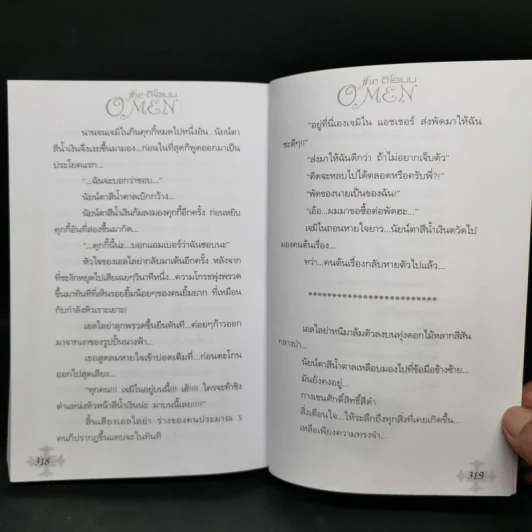 the ดิโอเมน
OMEN
นานจนเจมีไนกินคุกกี้หมดไปหนึ่งอัน...นัยน์ตา
สีน้ำเงินจึงเงยขึ้นมามอง...ก่อนในที่สุดก็พูดออกมาเป็น
ประโยคแรก...
"...ฉันจะบอกว่าชอบ..."
นัยน์ตาสีน้ำตาลเบิกกว้าง...
นัยน์ตาสีน้ำเงินก้มลงมองคุกกี้อีกครั้ง ก่อนหยิบ
คุกกี้อันที่สองขึ้นมากัด...
"...คุกกี้นี่น่ะ...บอกแอมเบอร์ว่าฉันชอบนะ"
หัวใจของเอลไลย่ากลับมาเต้นอีกครั้ง หลังจาก
ที่ชะงักหยุดไปเสียเฉยๆวินาทีหนึ่ง...ความโกรธพุ่งพรวด
ขึ้นมาทันทีที่เห็นรอยยิ้มน้อยๆของคนยิ้มยาก ที่เหมือน
กับกำลังหัวเราะเยาะ!
เอลไลย่าลุกพรวดขึ้นยืนทันที...ค่อยๆก้าวออก
มาจากเงาของรูปปั้นนางฟ้า...
เธอสูดลมหายใจเข้าปอดเต็มที่...ก่อนตะโกน
ออกไปสุดเสียง...
"ทุกคน!! เจมีไนอยู่บนนี้!!! เฮ้!!! ใครจะท้าชิง
ตำแหน่งหัวหน้าสีน้ำเงินน่ะ มาบนนี้เลย!!!!!"
สิ้นเสียงเอลไลย่า ร่างของคนประมาณ 5
คนก็ปรากฏขึ้นแทบจะในทันที
318
the ดิโอเมน
OMEN
"อยู่ที่นี่เองเจมีไน แอชเชอร์ ส่งพัดมาให้ฉัน
ซะดีๆ!!"
"ส่งมาให้ฉันดีกว่า ถ้าไม่อยากเจ็บตัว"
"คิดจะหลบไปได้ตลอดหรือครับพี่?!"
"พัดของนายเป็นของฉัน!"
"เอ้อ...ผมมาขอซื้อต่อพัดฮะ..."
เจมีไนถอนหายใจยาว...นัยน์ตาสีน้ำเงินตวัดไป
มองคนต้นเรื่อง...
ทว่า...คนต้นเรื่องกลับหายตัวไปแล้ว...
************************
เอลไลย่าหนีมาล้มตัวลงบนทุ่งดอกไม้หลากสีสัน
กลางป่า...
นัยน์ตาสีน้ำตาลเหลือบมองไปที่ข้อมือข้างซ้าย...
มันยังคงอยู่...
กางเขนศักดิ์สิทธิ์สีดำ
สิ่งเตือนใจ...ให้ระลึกถึงทุกสิ่งที่เคยเกิดขึ้น...
เหลือเพียงความทรงจำ...
319